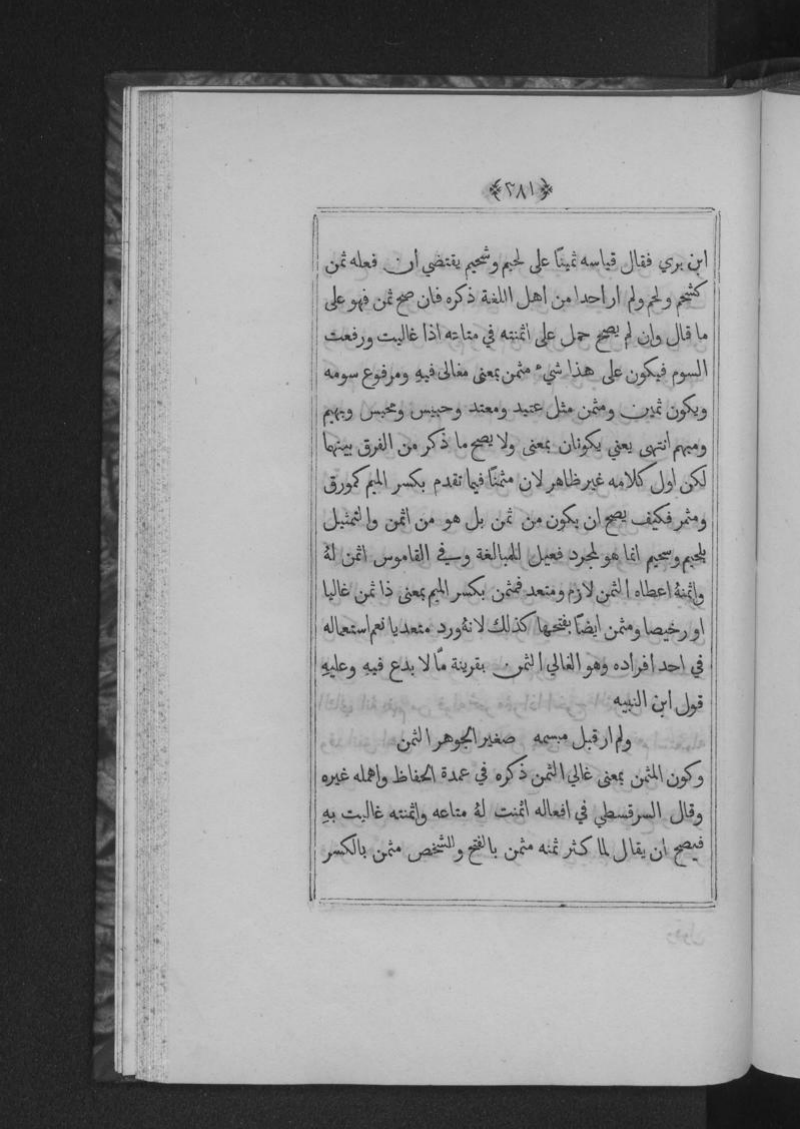 ﴿٢٨١﴾
ابن بري فقال قياسه ثمينًا على لحيم وشحيم يقتضي أن فعله ثمن
كشحم ولحم ولم ار احدا من اهل اللغة ذكره فان صح ثمن فهو على
ما قال وان لم يصح حمل على اثمنته في متاته اذا غاليت ورفعت
السوم فيكون على هذا شيء مثمن بمعنى مغالى فيهِ ومرفوع سومه
ويكون ثمين ومثمن مثل عتيد ومعتد وحبيس ومحبس وبهيم
ومبهم انتهى يعني يكونان بمعنى ولا يصح ما ذكر من الفرق بينهما
لكن اول كلامه غير ظاهر لان مثمنًا فيما تقدم بكسر الميم كمورق
ومثمر فكيف يصح ان يكون من ثمن بل هو من اثمن والتمثيل
بلحيم وسحيم انما هو لمجرد فعيل للمبالغة وفي القاموس اثمن لهُ
واثمنهُ اعطاه الثمن لازم ومتعد فمثمن بكسر الميم بمعنى ذا ثمن غاليا
او رخيصا ومثمن ايضًا بفتحها كذلك لانهُ ورد متعديا نعم استعماله
في احد افراده وهو الغالي الثمن بقرينة مّا لا بدع فيهِ وعليهِ
قول ابن النبيه
ولم ار قبل مبسمه صغير الجوهر الثمن
وكون المثمن بمعنى غالي الثمن ذكره في عمدة الحفاظ واهمله غيره
وقال السرقسطي في افعاله اثمنت لهُ متاعه واثمنته غاليت بهِ
فيصح ان يقال لما كثر ثمنه مثمن بالفتح والشخص مثمن بالكسر